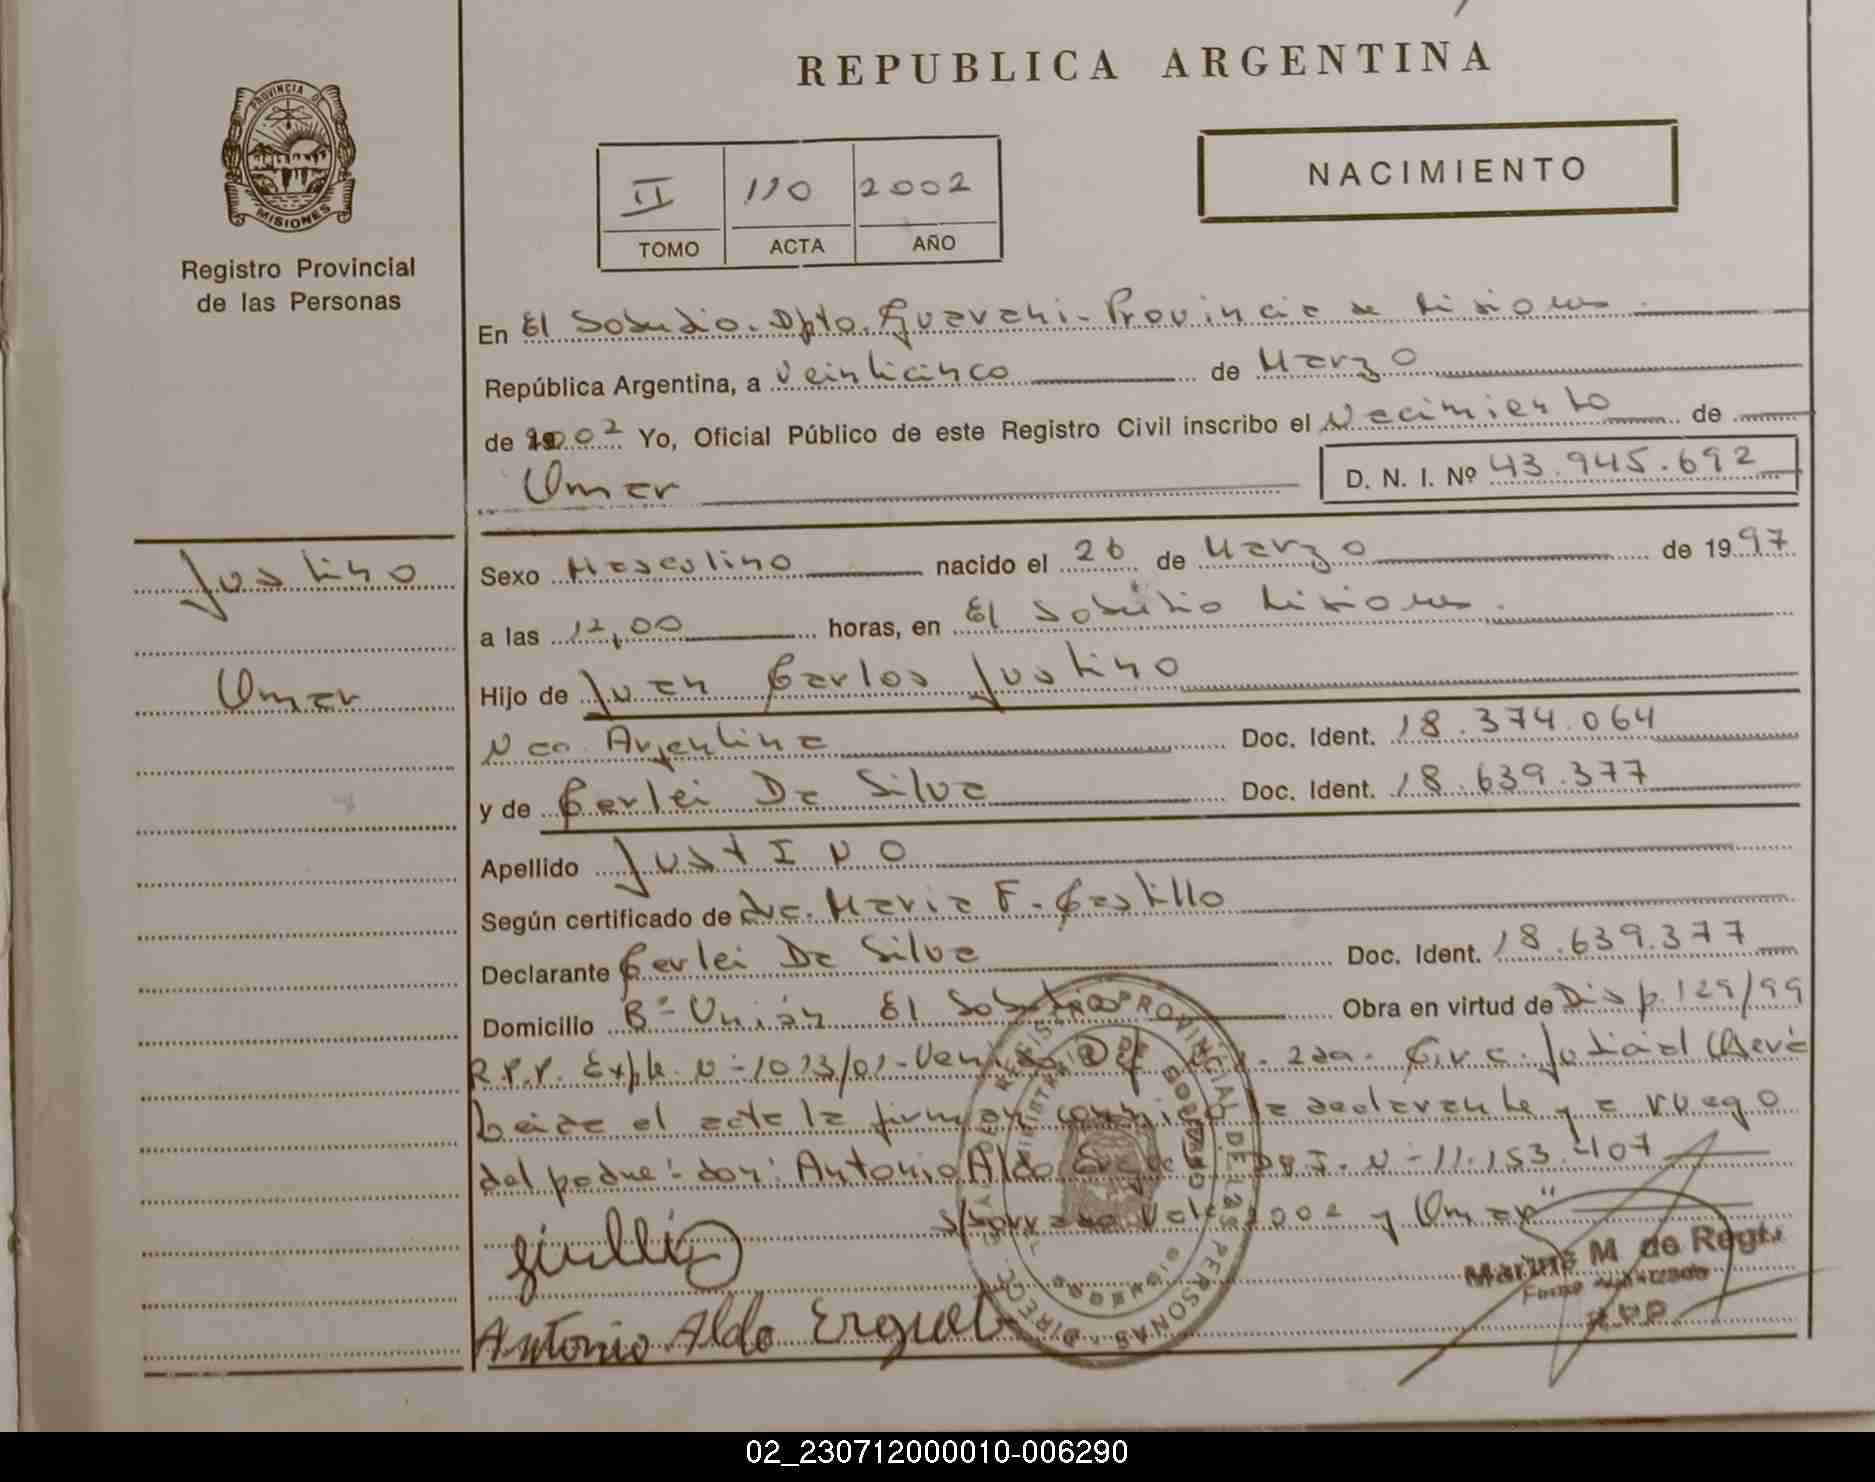 REPUBLICA ARGENTINA
PROVINCIA DE
MISIONES
Registro Provincial
de las Personas
II 110 2002
TOMO ACTA AÑO
NACIMIENTO
En El Soberbio. Dpto. Guarani. Provincia de Misiones
República Argentina, a Veinticinco de Marzo
de 2002 Yo, Oficial Público de este Registro Civil inscribo el Nacimiento de
Omar D. N. I. Nº 43.945.692
Justino
Omar
Sexo Masculino nacido el 26 de Marzo de 1997
a las 12,00 horas, en El Soberbio Misiones.
Hijo de Juan Carlos Justino
Nac. Argentina Doc. Ident. 18.374.064
y de Carlei Da Silva Doc. Ident. 18.639.377
Apellido JUSTINO
Según certificado de Dra. Maria F. Castillo
Declarante Carlei Da Silva Doc. Ident. 18.639.377
Domicilio Bº Unión El Soberbio Obra en virtud de Disp. 129/99
R.P.P. Expte. Nº 1013/01 2da. Circ. Judicial
el acta la firman conmigo la declarante y a ruego
del padre: don: Antonio Aldo D.N.I. Nº 11.153.407
S/borrado Vale 2002 y Omar"
Antonio Aldo
M de Regt.
Firma Autorizada
R.P.P.
REGISTRO PROVINCIAL DE LAS PERSONAS
MISIONES
02_230712000010-006290